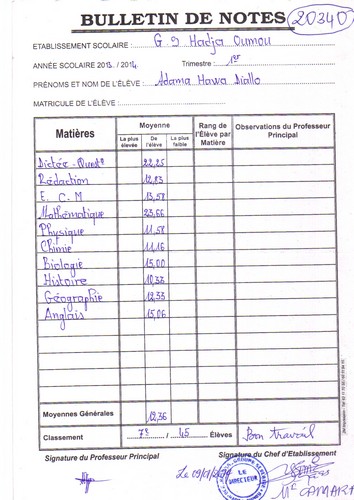 BULLETIN DE NOTES 20340
ETABLISSEMENT SCOLAIRE : G S Hadja Oumou
ANNÉE SCOLAIRE 2013 / 2014 Trimestre : 1er
PRÉNOMS ET NOM DE L'ÉLÈVE : Adama Hawa Diallo
MATRICULE DE L'ÉLÈVE :
Matières Moyenne Rang de l'Élève par Matière Observations du Professeur Principal
La plus élevée De l'élève La plus faible
Dictée - Quest° 22,25
Rédaction 12,83
E. C. M 13,58
Mathématique 23,66
Physique 11,58
Chimie 11,16
Biologie 15,00
Histoire 10,33
Géographie 12,33
Anglais 15,06
Moyennes Générales 12,36
Classement 7e / 45 Élèves Bon travail
Signature du Professeur Principal Signature du Chef d'Etablissement
Le
LE DIRECTEUR